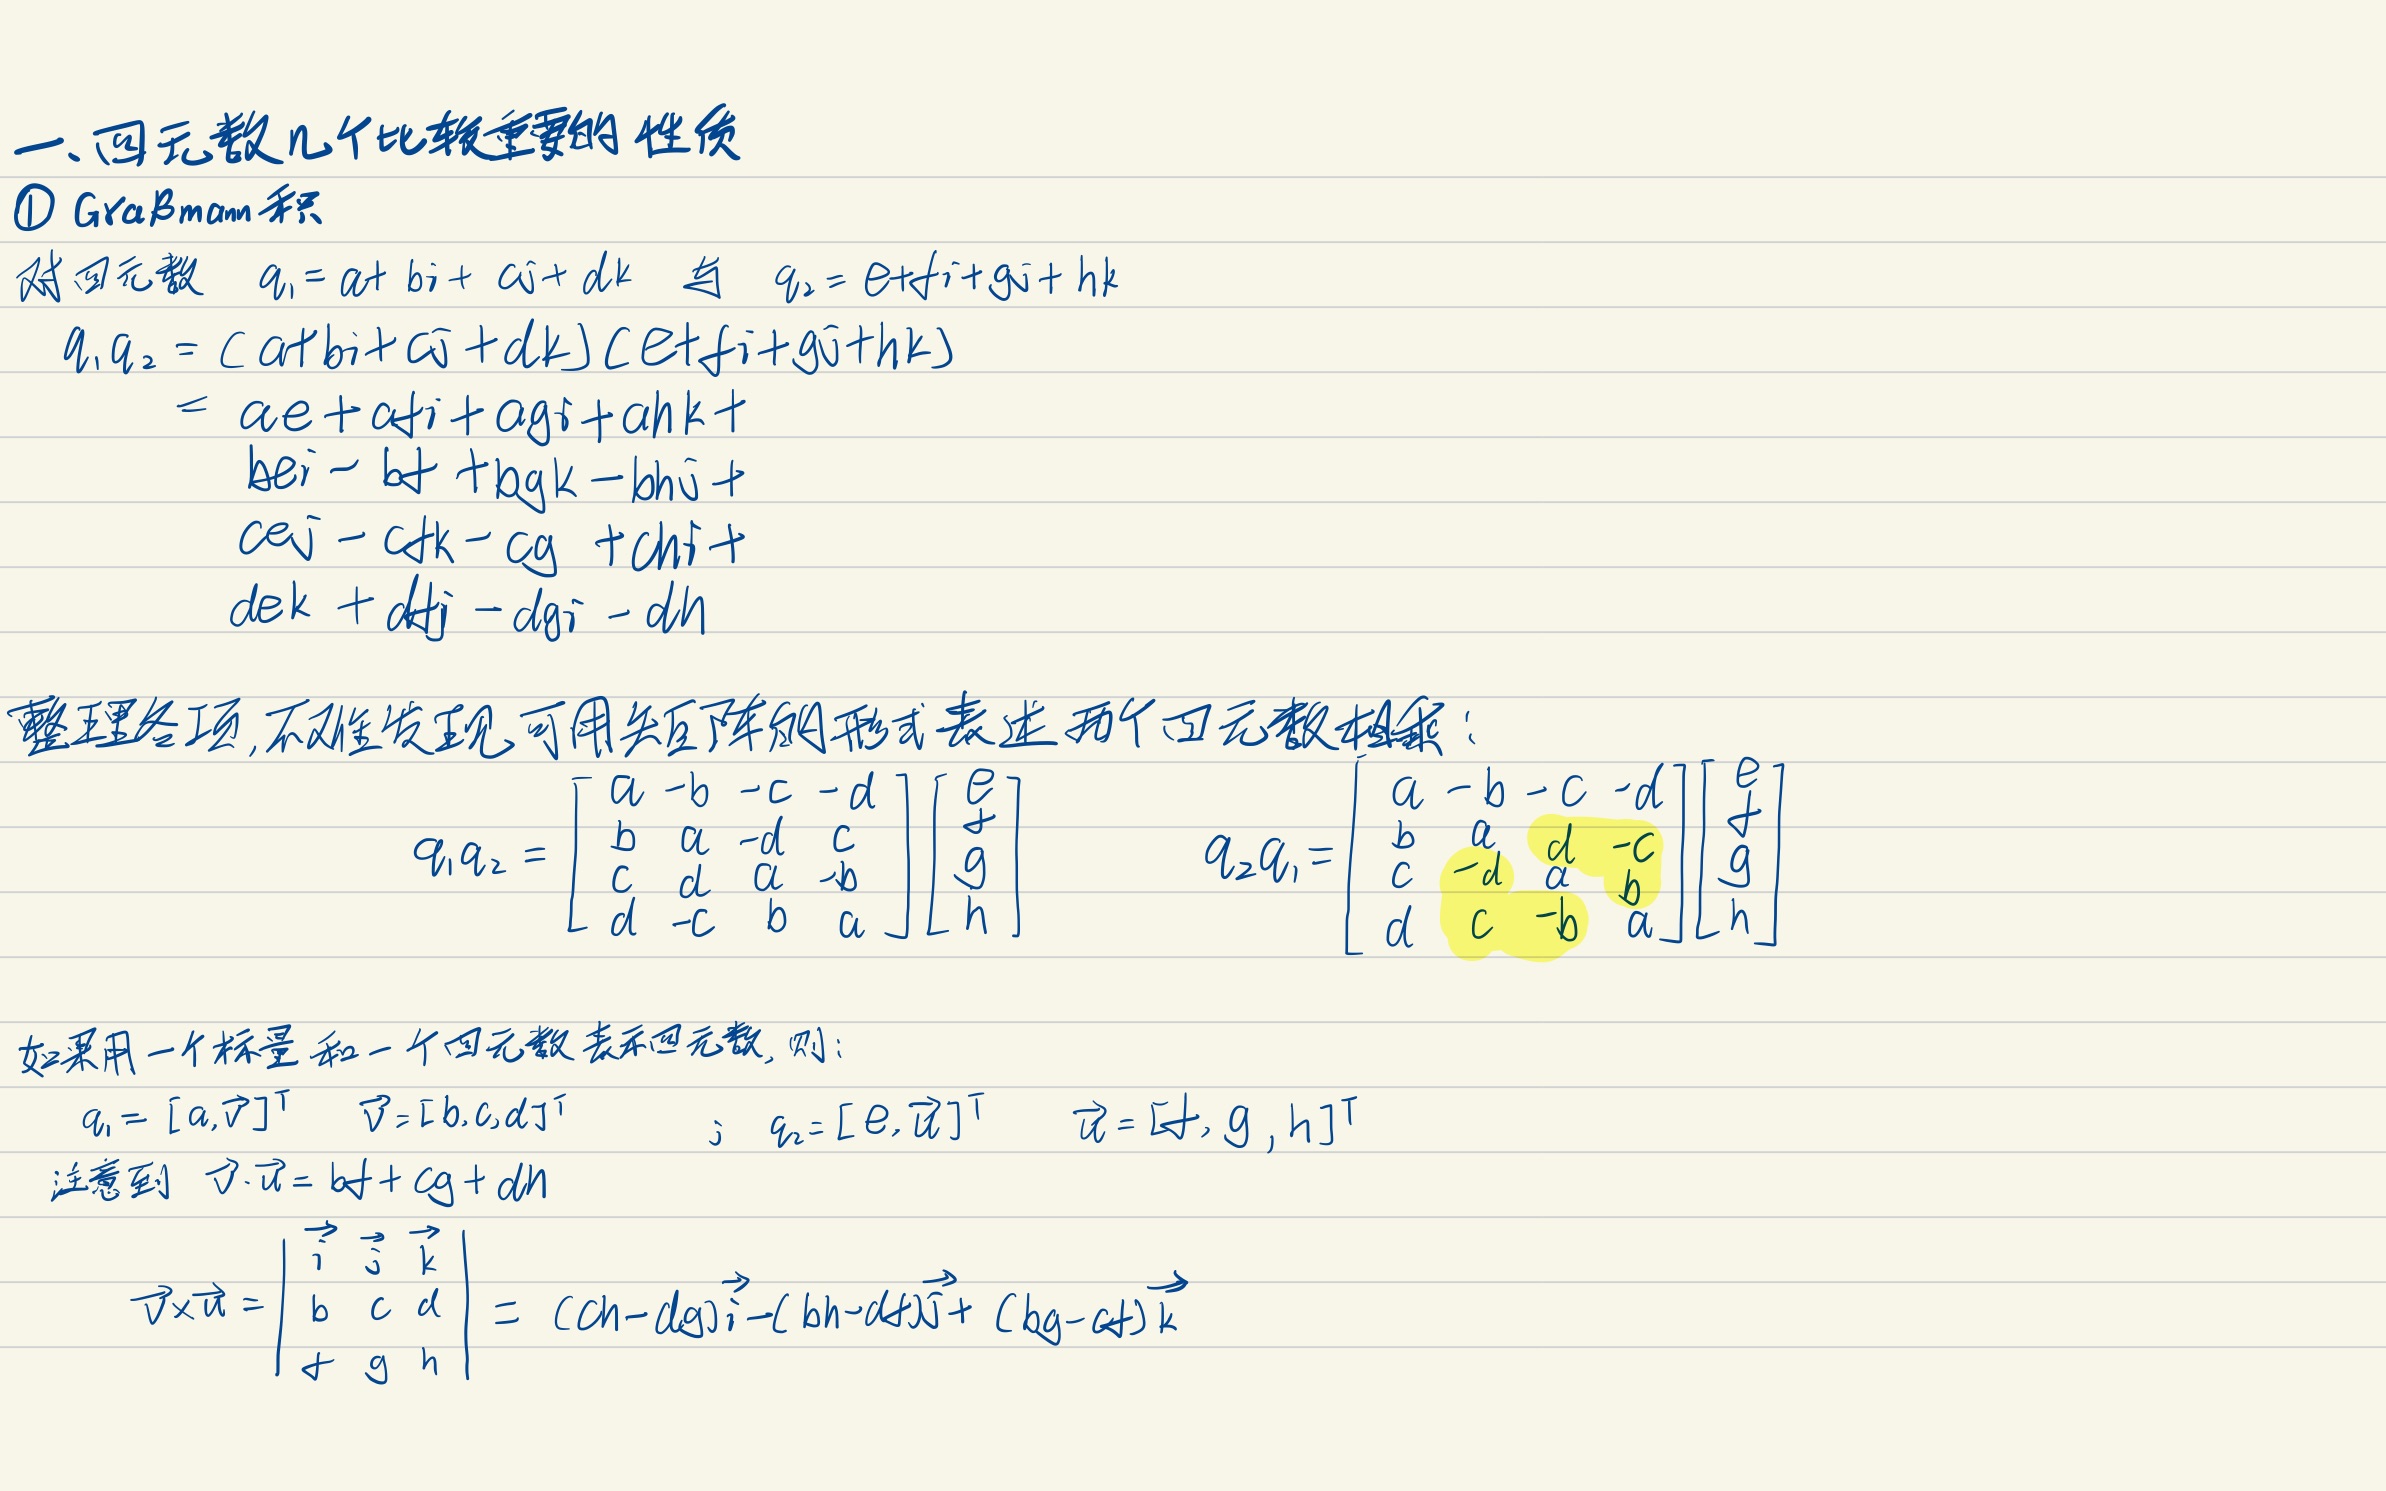 一、四元数几个比较重要的性质
① Graßmann 积
对四元数 q₁ = a + bi + cj + dk 与 q₂ = e+fi+gj+hk
q₁q₂ = (a+bi+cj+dk)(e+fi+gj+hk)
= ae + afi + agj + ahk +
bei - bf + bgk - bhj +
cej - cfk - cg + chi +
dek + dfj - dgi - dh
整理各项,不难发现,可用矩阵的形式表述两个四元数相乘:
q₁q₂ = [a -b -c -d; b a -d c; c d a -b; d -c b a] [e; f; g; h]
q₂q₁ = [a -b -c -d; b a d -c; c -d a b; d c -b a] [e; f; g; h]
如果用一个标量和一个四元数表示四元数,则:
q₁ = [a, v⃗]ᵀ v⃗ = [b, c, d]ᵀ ; q₂ = [e, u⃗]ᵀ u⃗ = [f, g, h]ᵀ
注意到 v⃗·u⃗ = bf + cg + dh
v⃗×u⃗ = |i⃗ j⃗ k⃗; b c d; f g h| = (ch-dg)i⃗ - (bh-df)j⃗ + (bg-cf)k⃗